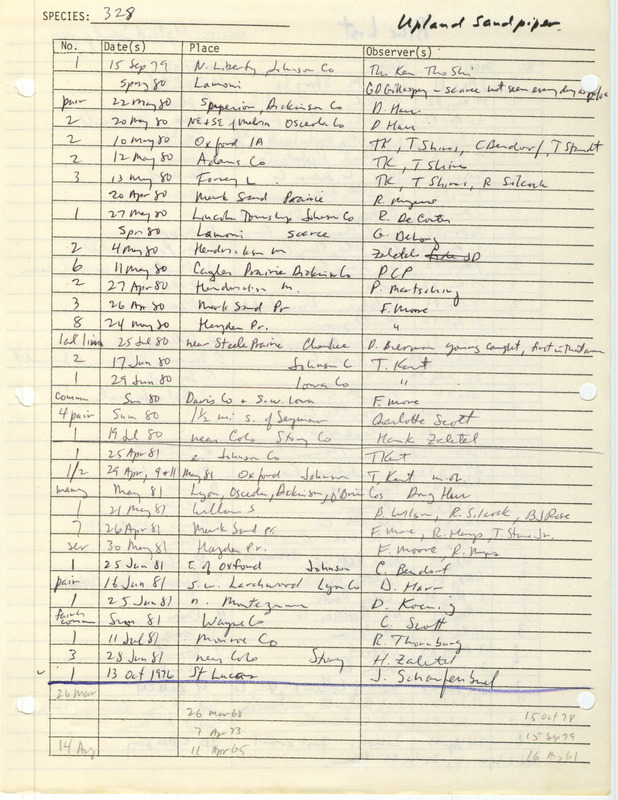 SPECIES: 328 Upland Sandpiper
No. Date(s) Place Observer(s)
1 15 Sep 79 N. Liberty Johnson Co
Spring 80 Lamoni G D Gillespey - scarce not seen every day
pair 22 May 80 Superior, Dickinson Co D. Harr
2 20 May 80 Osceola Co D Harr
2 10 May 80 Oxford IA TK, T Shires, C Bendorf, T Staudt
2 12 May 80 Adams Co TK, T Shires
3 13 May 80 Forney L. TK, T Shires, R Silcock
20 Apr 80 Mark Sand Prairie R. Myers
1 27 May 80 Lincoln Township Johnson Co R. De Coster
Spr 80 Lamoni scarce G. DeLong
2 4 May 80 Hendrickson M Zaletel
6 11 May 80 Cayler Prairie Dickinson Co DCP
2 27 Apr 80 Hendrickson M. P. Martsching
3 26 Apr 80 Mark Sand Pr F. Moore
8 24 May 80 Hayden Pr. "
1 ad 25 Jul 80 near Steele Prairie Cherokee D. Bierman young caught, first in that area
2 17 Jun 80 Johnson C T. Kent
1 29 Jun 80 Iowa Co "
common Sum 80 Davis Co + S.W. Iowa F. More
4 pair Sum 80 1 1/2 mi s. of Seymour Charlotte Scott
1 19 Jul 80 near Colo Story Co Hank Zaletel
1 25 Apr 81 e. Johnson Co T Kent
1/2 29 Apr, 9+11 May 81 Oxford Johnson T. Kent m.ob.
many May 81 Lyon, Osceola, Dickinson, O'Brien Cos Doug Harr
1 21 May 81 Willow S B. Wilson, R. Silcock, B J Rose
7 26 Apr 81 Mark Sand Pr. F. More, R. Myers, T. Stone Jr.
sev 30 May 81 Hayden Pr. F. Moore, R. Myers
1 25 Jun 81 E. of Oxford Johnson C. Bendorf
pair 16 Jun 81 S.W. Larchwood Lyon Co D. Harr
1 25 Jun 81 n. Montezuma D. Koenig
fairly common Sum 81 Wayne Co C. Scott
1 11 Jul 81 Monroe Co R. Thornburg
3 28 Jun 81 near Colo Story H. Zaletel
1 13 Oct 1976 St Lucas J. Schaufenbuel
26 Mar
26 Mar 68 15 Oct 78
7 Apr 73 15 Sep 79
14 Aug 11 Apr 65 16 Aug 61